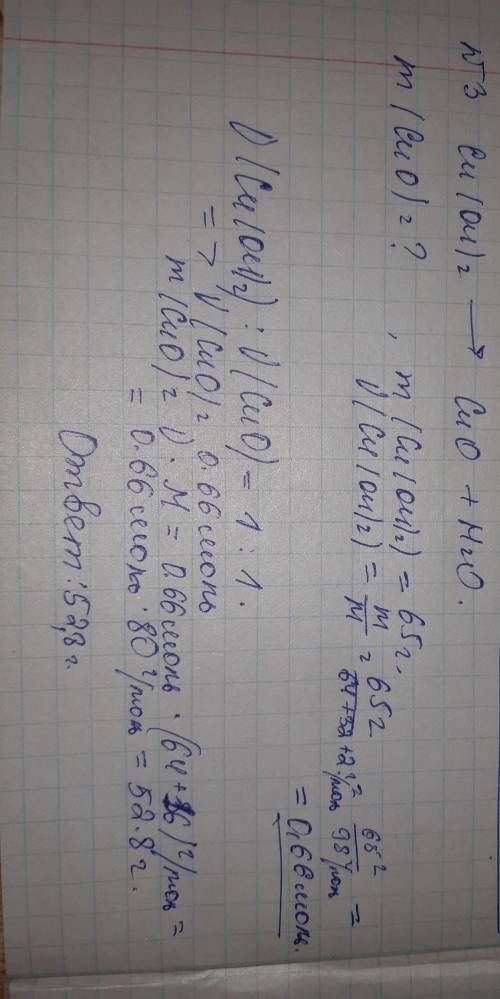 №3 Cu(OH)₂ → CuO + H₂O.
m(CuO) = ? , m(Cu(OH)₂) = 65г,
ν(Cu(OH)₂) = m/M = 65г/64+32+2 г/моль = 65г/98 г/моль =
= 0,66 моль.
ν(Cu(OH)₂) : ν(CuO) = 1 : 1.
=> ν(CuO) = 0.66 моль
m(CuO) = ν · M = 0.66 моль · (64+16) г/моль =
= 0.66 моль · 80 г/моль = 52.8 г.
Ответ: 52,8 г.